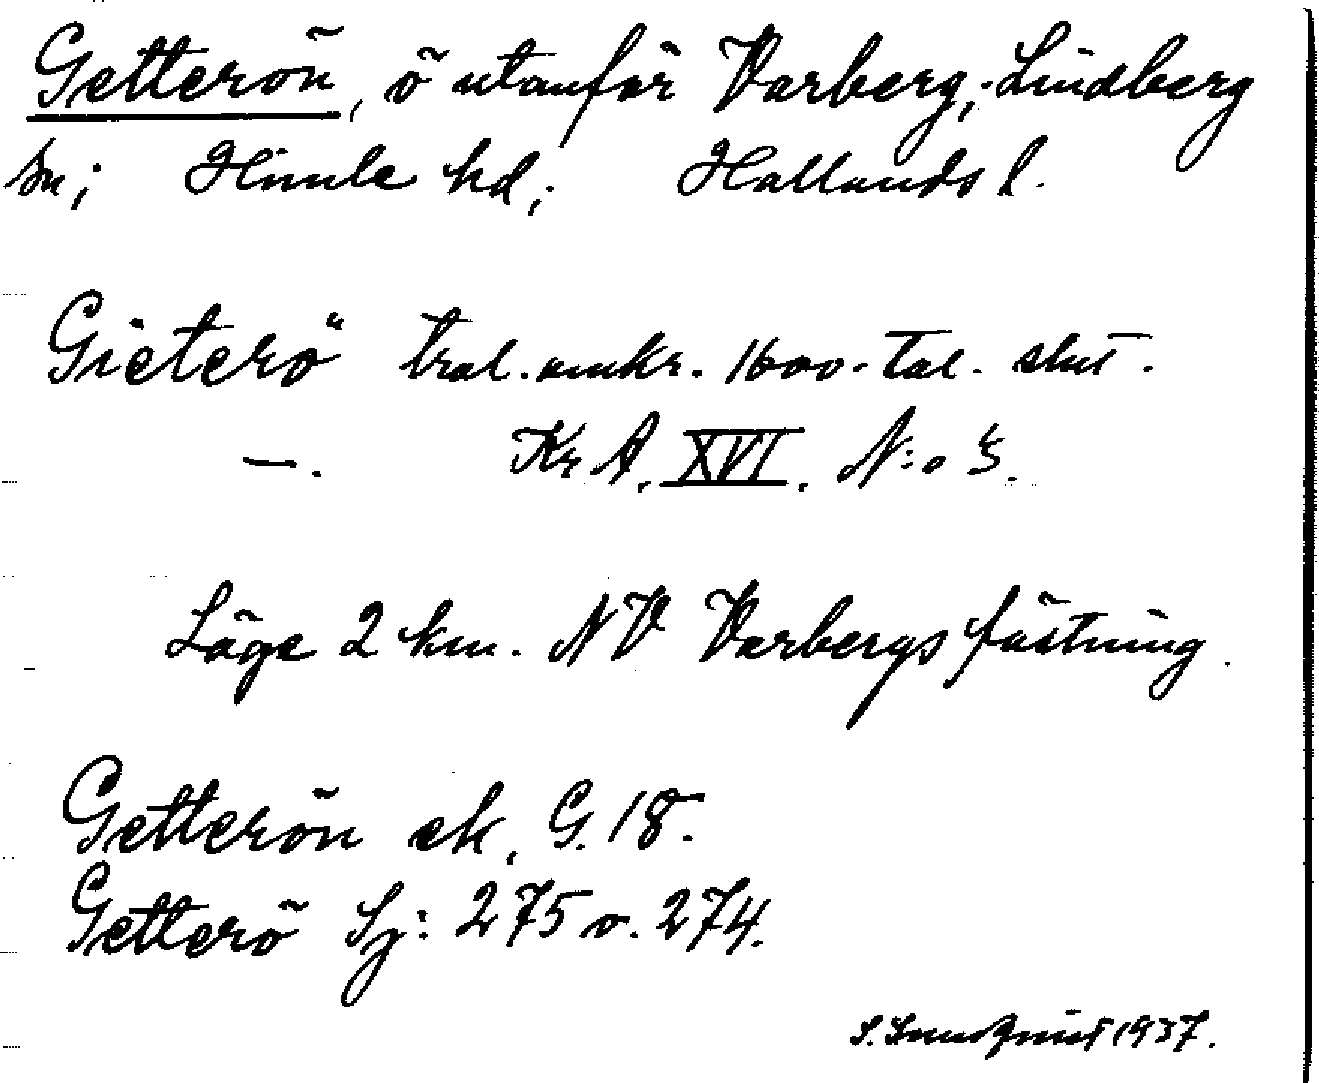 Getterön, ö utanför Varberg; Lindberg
sn; Himle hd; Hallands l.
Gieterö trol. omkr. 1600-tal. slut.
—. Kr A. XVI. N:o 3.
Läge 2 km. NV Varbergs fästning.
Getterön ek. G. 18.
Getterö Sj: 275 o. 274.
S. Sundqvist 1937.